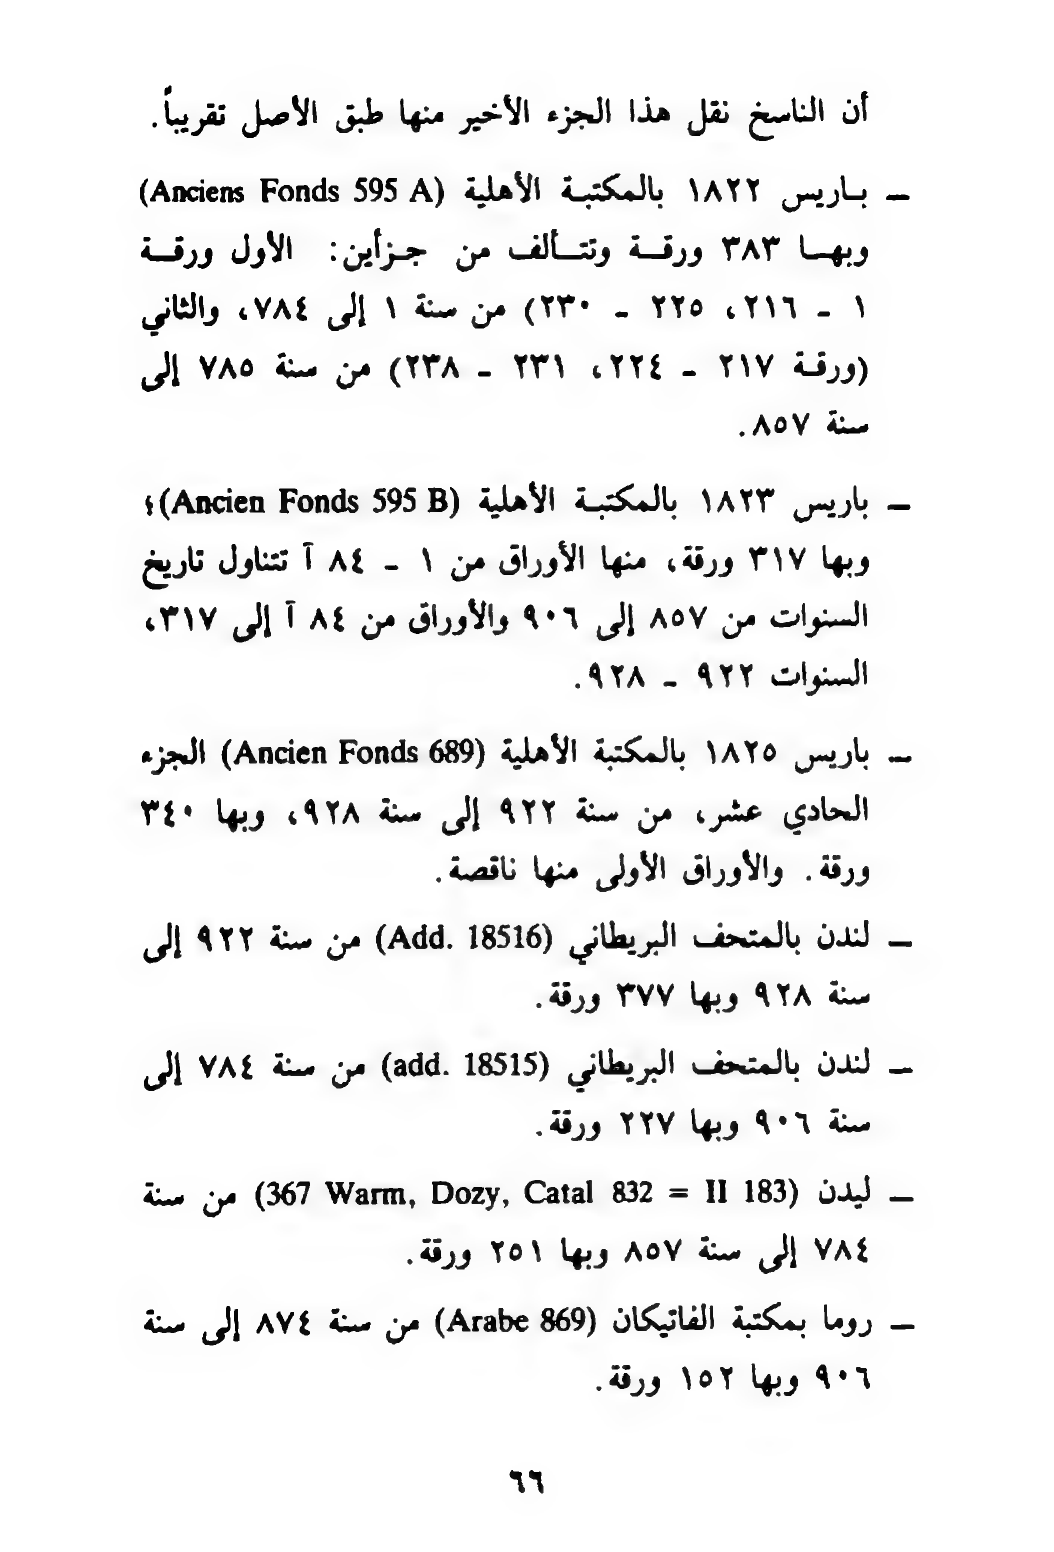 أن الناسخ نقل هذا الجزء الأخير منها طبق الأصل تقريباً.
ـ بـاريس ١٨٢٢ بالمكتبـة الأهلية (Anciens Fonds 595 A)
وبهـا ٣٨٣ ورقـة وتتـألف من جـزأين: الأول ورقـة
١ ـ ٢١٦، ٢٢٥ ـ ٢٣٠) من سنة ١ إلى ٧٨٤، والثاني
(ورقـة ٢١٧ ـ ٢٢٤، ٢٣١ ـ ٢٣٨) من سنة ٧٨٥ إلى
سنة ٨٥٧.
ـ باريس ١٨٢٣ بالمكتبـة الأهلية (Ancien Fonds 595 B)؛
وبها ٣١٧ ورقة، منها الأوراق من ١ ـ ٨٤ آ تتناول تاريخ
السنوات من ٨٥٧ إلى ٩٠٦ والأوراق من ٨٤ آ إلى ٣١٧،
السنوات ٩٢٢ ـ ٩٢٨.
ـ باريس ١٨٢٥ بالمكتبة الأهلية (Ancien Fonds 689) الجزء
الحادي عشر، من سنة ٩٢٢ إلى سنة ٩٢٨، وبها ٣٤٠
ورقة. والأوراق الأولى منها ناقصة.
ـ لندن بالمتحف البريطاني (Add. 18516) من سنة ٩٢٢ إلى
سنة ٩٢٨ وبها ٣٧٧ ورقة.
ـ لندن بالمتحف البريطاني (add. 18515) من سنة ٧٨٤ إلى
سنة ٩٠٦ وبها ٢٢٧ ورقة.
ـ ليدن (367 Warm, Dozy, Catal 832 = II 183) من سنة
٧٨٤ إلى سنة ٨٥٧ وبها ٢٥١ ورقة.
ـ روما بمكتبة الفاتيكان (Arabe 869) من سنة ٨٧٤ إلى سنة
٩٠٦ وبها ١٥٢ ورقة.
٦٦